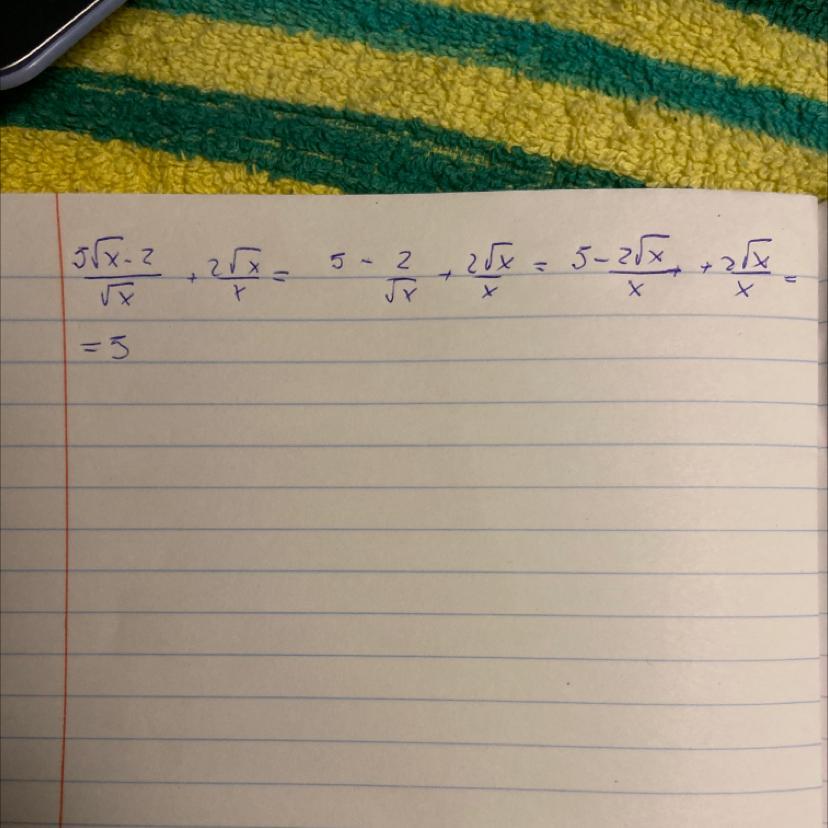 (5√x - 2)/√x + 2√x/x = 5 - 2/√x + 2√x/x = 5 - 2√x/x + + 2√x/x =
= 5